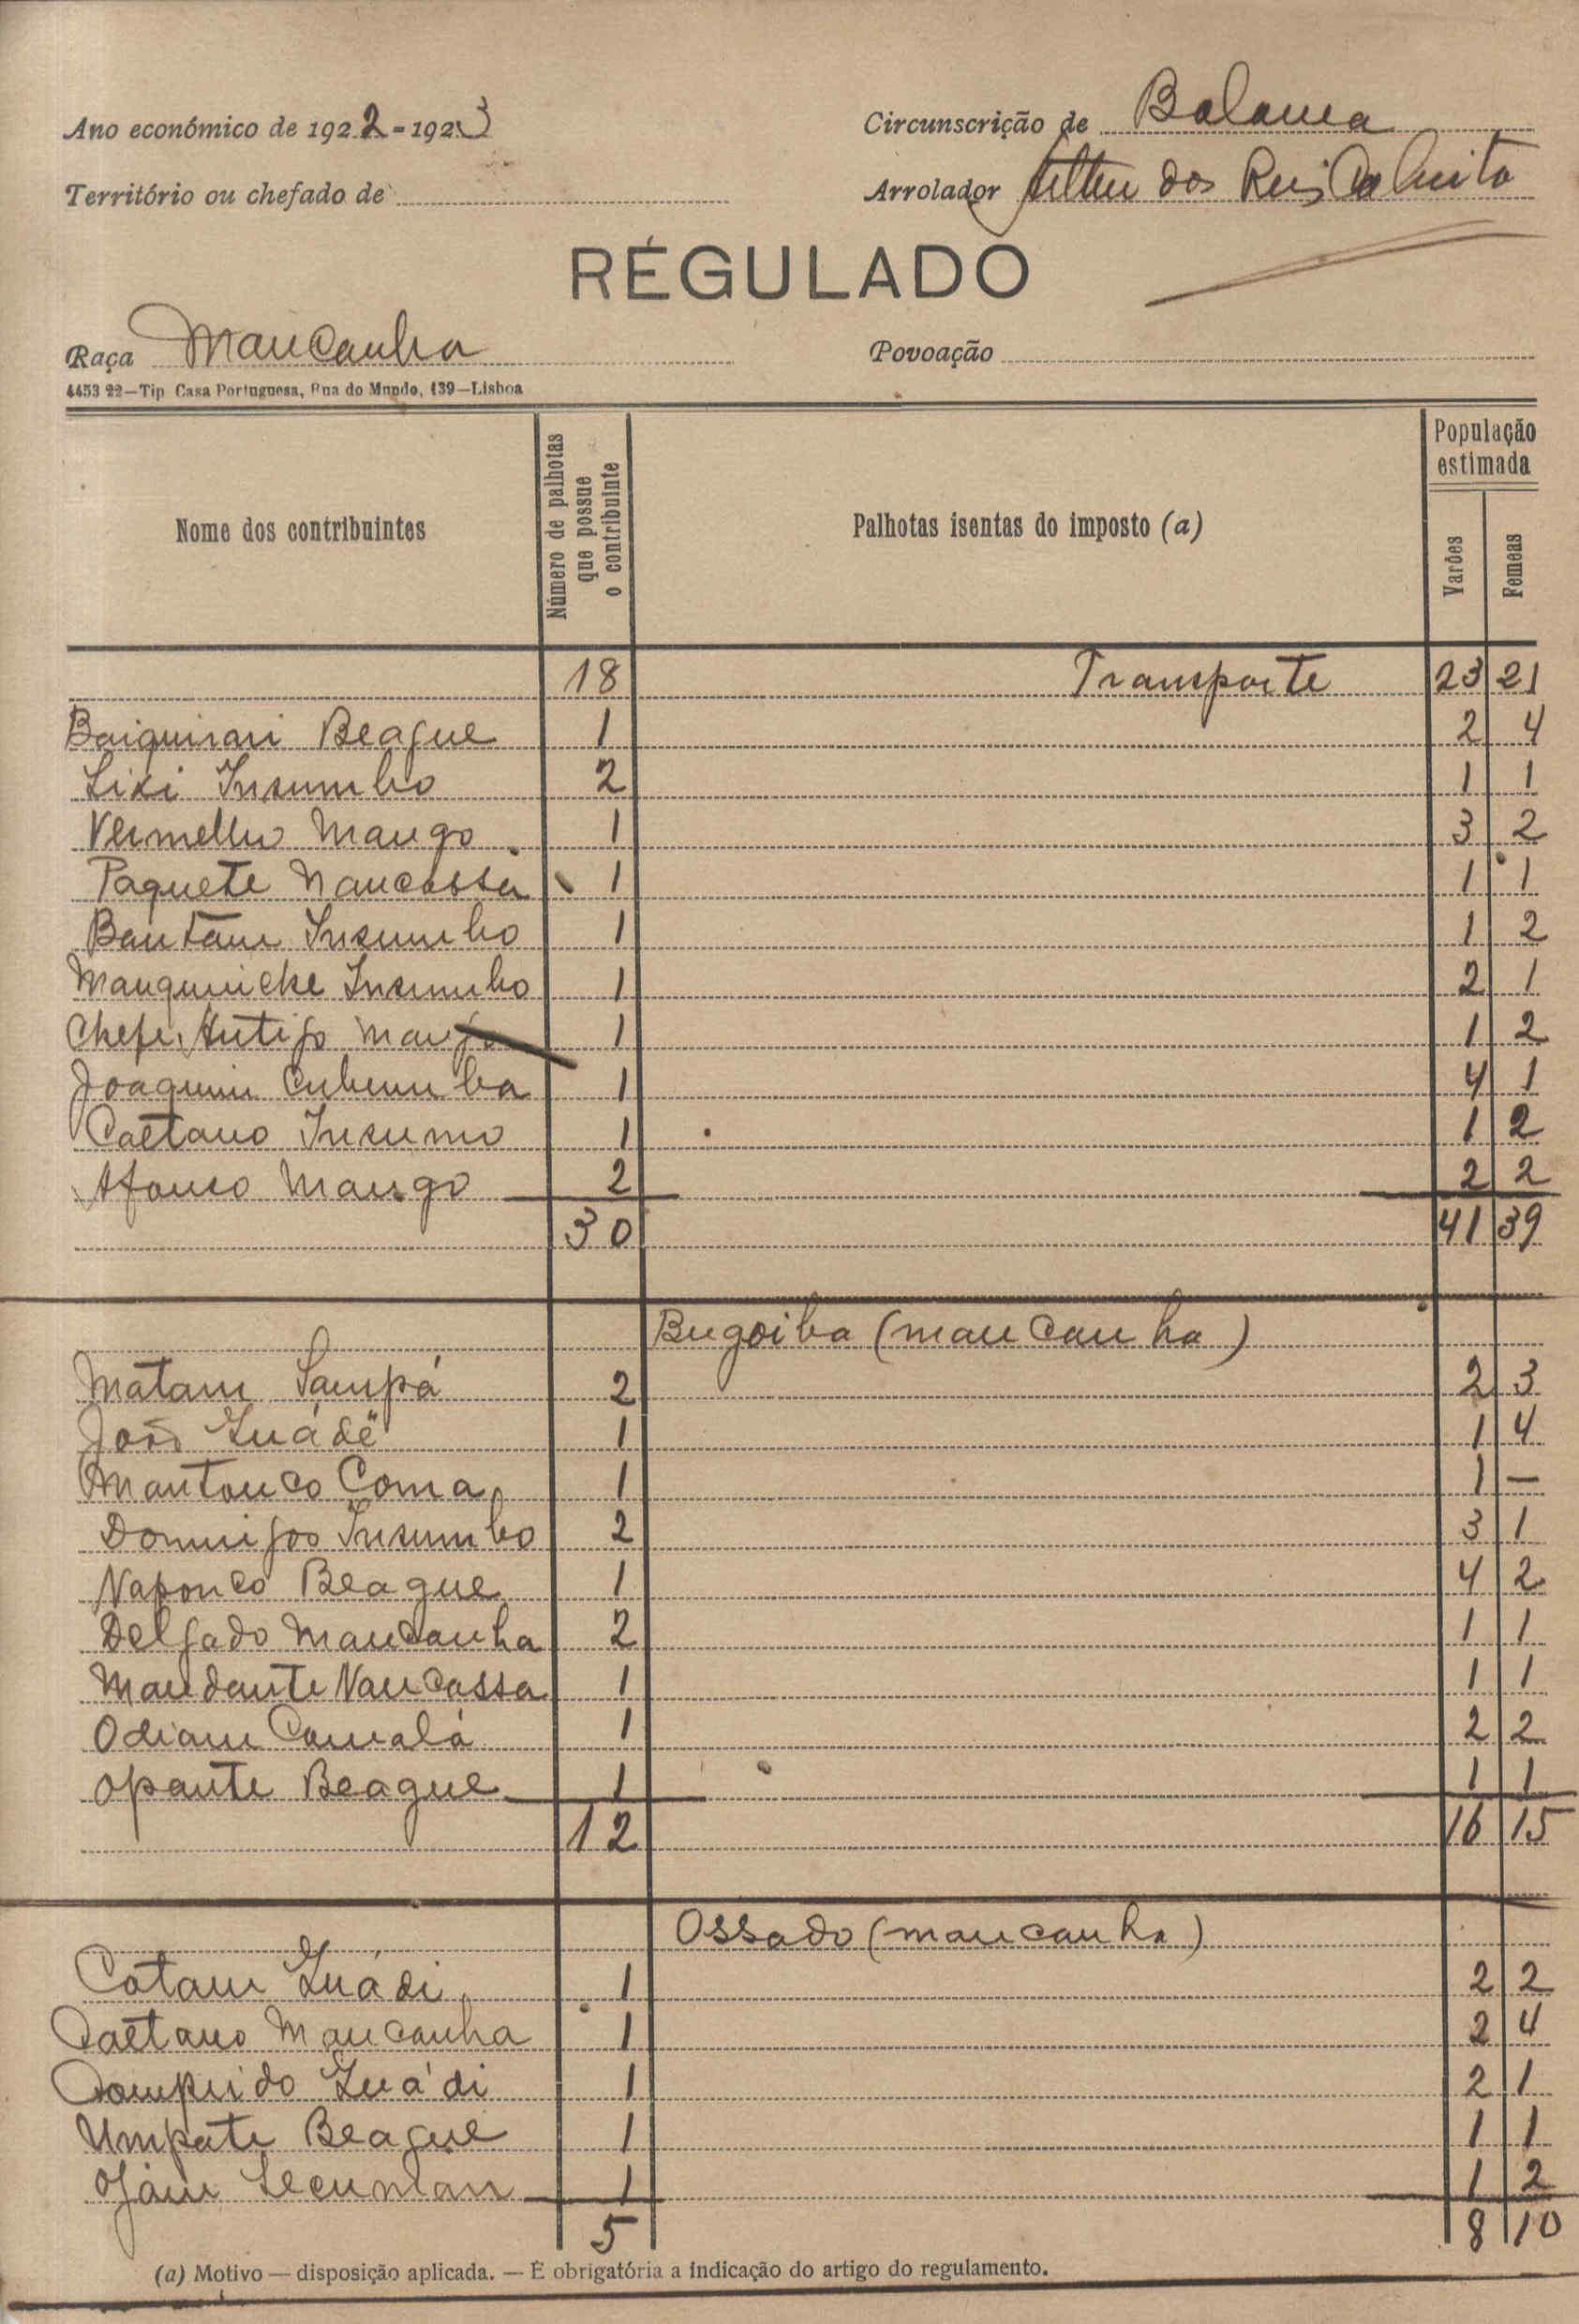 Ano económico de 1922-1923
Circunscrição de Bolama
Território ou chefado de
Arrolador dos Reis
RÉGULADO
Raça Mancanha
Povoação
4453 22—Tip Casa Portuguesa, Rua do Mundo, 139—Lisboa
Nome dos contribuintes
Número de palhotas que possue o contribuinte
Palhotas isentas do imposto (a)
População estimada
Varões
Femeas
18 Transporte 23 21
Beague 1 2 4
Lixi Insumbo 2 1 1
Vermelho Mango 1 3 2
Paquete Nancassa 1 1 1
Bantam Insumbo 1 1 2
Insumbo 1 2 1
Chefe Antigo Mango 1 1 2
Joaquim 1 4 1
Caetano Insumo 1 1 2
Afonso Mango 2 2 2
30 41 39
Bugoiba (mancanha)
Matam Sampá 2 2 3
João 1 1 4
Mantonco Coma 1 1 —
Domingos Insumbo 2 3 1
Naponco Beague 1 4 2
Delgado Mancanha 2 1 1
Mandante Nancassa 1 1 1
Odiam Camalá 1 2 2
Opante Beague 1 1 1
12 16 15
Ossado (mancanha)
Catam 1 2 2
Caetano Mancanha 1 2 4
Comprido 1 2 1
Umpate Beague 1 1 1
1 1 2
5 8 10
(a) Motivo — disposição aplicada. — É obrigatória a indicação do artigo do regulamento.